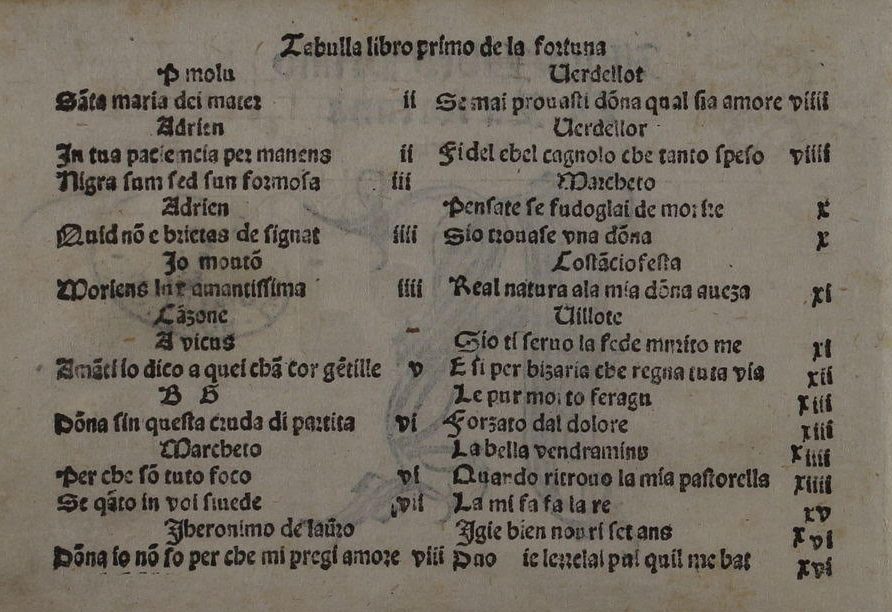 Tabulla libro primo de la fortuna
P molu
Sãta maria dei mater ii
Adrien
In tua paciencia per manens ii
Nigra sum sed sun formosa iii
Adrien
Quid nõ e brietas de signat iiii
Jo moutõ
Moriens lux amantissima iiii
Cãzone
A vicus
Amãti io dico a quei chã cor gẽtille v
B S
Dõna sin questa cruda di partita vi
Marcheto
Per che sõ tuto foco vi
Se q̃ato in voi siuede vii
Jheronimo de lauro
Dõna io nõ so per che mi pregi amore viii
Verdellot
Se mai prouasti dõna qual sia amore viiii
Verdellor
Fidel ebel cagnolo che tanto speso viiii
Marcheto
Pensate se fudoglai de morire x
Sio trouase vna dõna x
Costãciofesta
Real natura ala mia dõna aueza xi
Uillote
Sio ti seruo la fede mmrito me xi
E si per bizaria che regna tuta via xii
Le pur morto feragu xiii
Forzato dal dolore xiii
La bella vendraminu xiiii
Quando ritrouo la mia pastorella xiiii
La mi fa fa la re xv
Jgie bien nouri set ans xvi
ie lerrelai pui quil me bat xvi